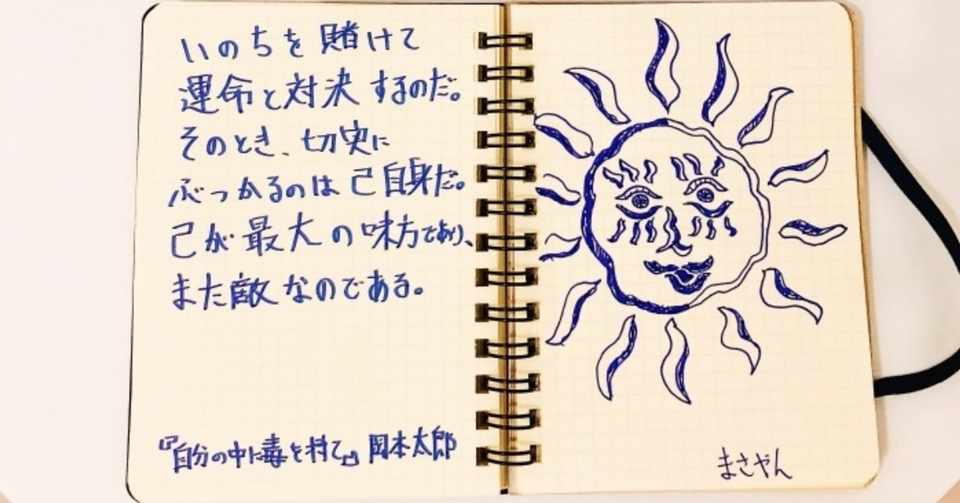 いのちを賭けて
運命と対決するのだ。
そのとき、切実に
ぶつかるのは己自身だ。
己が最大の味方であり、
また敵なのである。
『自分の中に毒を持て』岡本太郎
まさやん